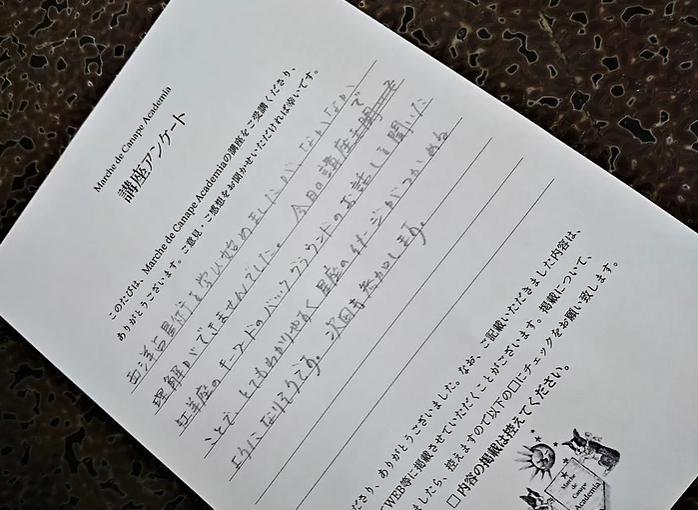 Marche de Canape Academia
講座アンケート
このたびは、Marche de Canape Academiaの講座をご受講くださり、
ありがとうございます。ご意見・ご感想をお聞かせいただければ幸いです。
西洋占星術を学び始めましたが、なかなか
理解ができませんでした。今日の講座で
牡羊座のキーワードのバックグラウンドのお話しを聞いた
ことで、とてもわかりやすく星座のイメージがつかめる
ようになりそうです。次回も参加します。
ださり、ありがとうございました。なお、ご記載いただきました内容は、
WEB等に掲載させていただくことがございます。掲載について、
ましたら、控えますので以下の口にチェックをお願い致します。
□ 内容の掲載は控えてください。
Marche
de
Canape
Academia